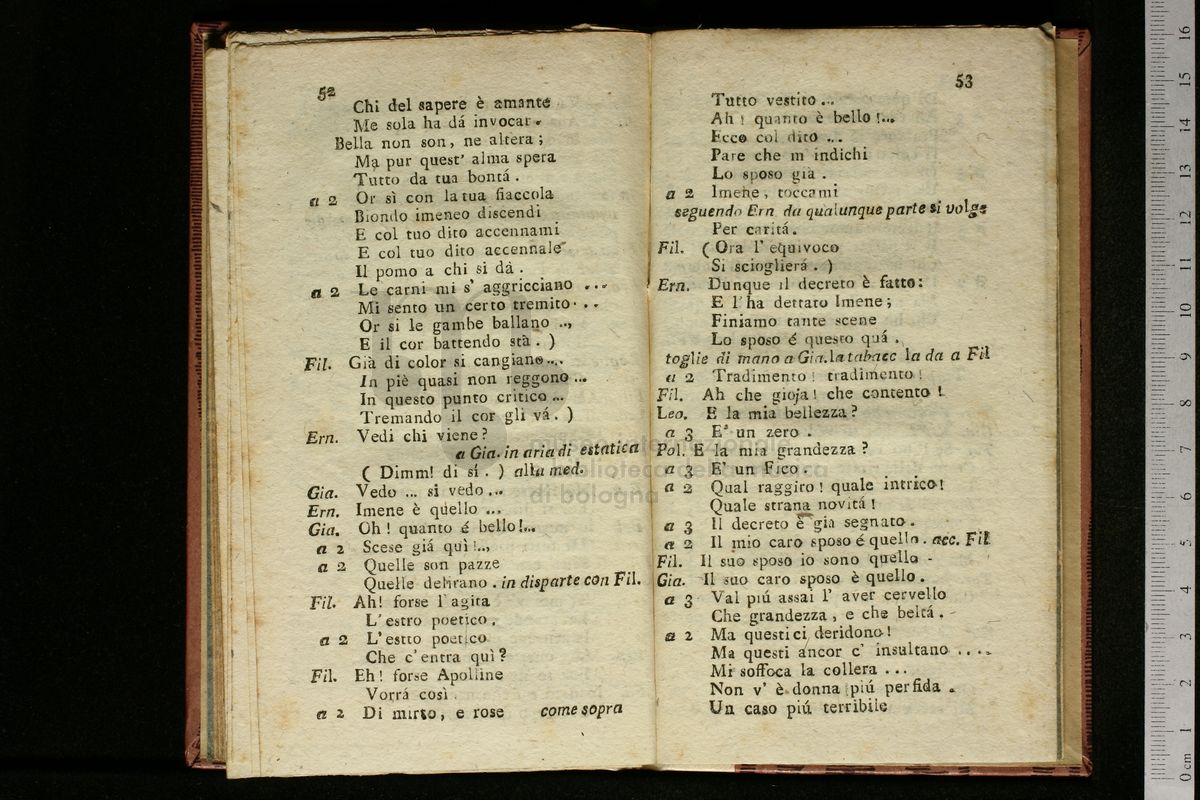 52
Chi del sapere è amante
Me sola ha dá invocar.
Bella non son, ne altera;
Ma pur quest' alma spera
Tutto da tua bontá.
a 2 Or sì con la tua fiaccola
Biondo imeneo discendi
E col tuo dito accennami
E col tuo dito accennale
Il pomo a chi si dà.
a 2 Le carni mi s' aggricciano ...
Mi sento un certo tremito ...
Or si le gambe ballano ..,
E il cor battendo stà. )
Fil. Già di color si cangiano ...
In piè quasi non reggono ...
In questo punto critico ...
Tremando il cor gli vá. )
Ern. Vedi chi viene?
a Gia. in aria di estatica
( Dimm! di sí. ) alla med.
Gia. Vedo ... si vedo ...
Ern. Imene è quello ...
Gia. Oh! quanto é bello!...
a 2 Scese giá quì!..,
a 2 Quelle son pazze
Quelle delirano. in disparte con Fil.
Fil. Ah! forse l'agita
L'estro poetico.
a 2 L'estto poetico
Che c'entra quì?
Fil. Eh! forse Apolline
Vorrá così.
a 2 Di mirto, e rose come sopra
53
Tutto vestito ...
Ah! quanto è bello!...
Ecco col dito ...
Pare che m'indichi
Lo sposo già.
a 2 Imene, toccami
seguendo Ern da qualunque parte si volge
Per caritá.
Fil. ( Ora l'equivoco
Si scioglierá. )
Ern. Dunque il decreto è fatto:
E l'ha dettato Imene;
Finiamo tante scene
Lo sposo é questo quá.
toglie di mano a Gia. la tabacc la da a Fil
a 2 Tradimento! tradimento!
Fil. Ah che gioja! che contento!
Leo. E la mia bellezza?
a 3 E' un zero.
Pol. E la mia grandezza?
a 3 E' un Fico.
a 2 Qual raggiro! quale intrico!
Quale strana novitá!
a 3 Il decreto è gia segnato.
a 2 Il mio caro sposo é quello. acc. Fil
Fil. Il suo sposo io sono quello -
Gia. Il suo caro sposo è quello.
a 3 Val piú assai l' aver cervello
Che grandezza, e che beltá.
a 2 Ma questi ci deridono!
Ma questi ancor c' insultano ....
Mi soffoca la collera ...
Non v' è donna piú perfida.
Un caso piú terribile
museo internazionale
biblioteca della musica
di bologna
0 cm 1 2 3 4 5 6 7 8 9 10 11 12 13 14 15 16